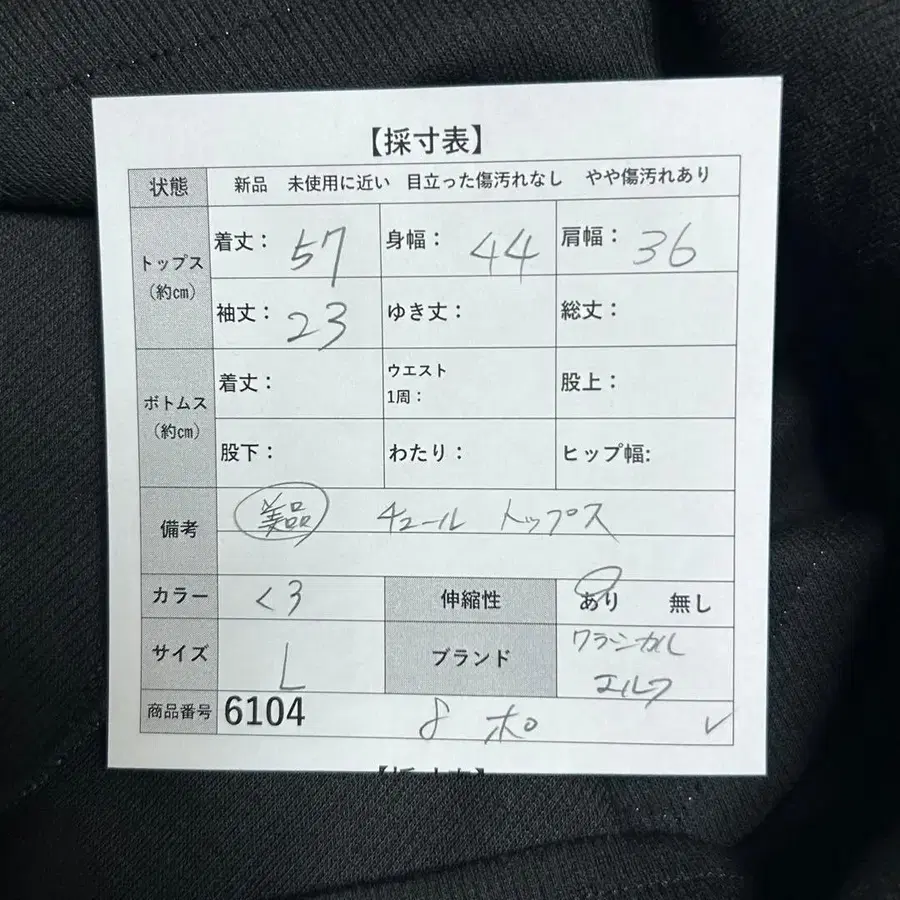 【採寸表】
状態 新品 未使用に近い 目立った傷汚れなし やや傷汚れあり
トップス（約cm） 着丈： 57 身幅： 44 肩幅： 36
袖丈： 23 ゆき丈： 総丈：
ボトムス（約cm） 着丈： ウエスト1周： 股上：
股下： わたり： ヒップ幅:
備考 美品 チュール トップス
カラー くろ 伸縮性 あり 無し
サイズ L ブランド
エルフ
商品番号 6104 8 ポ